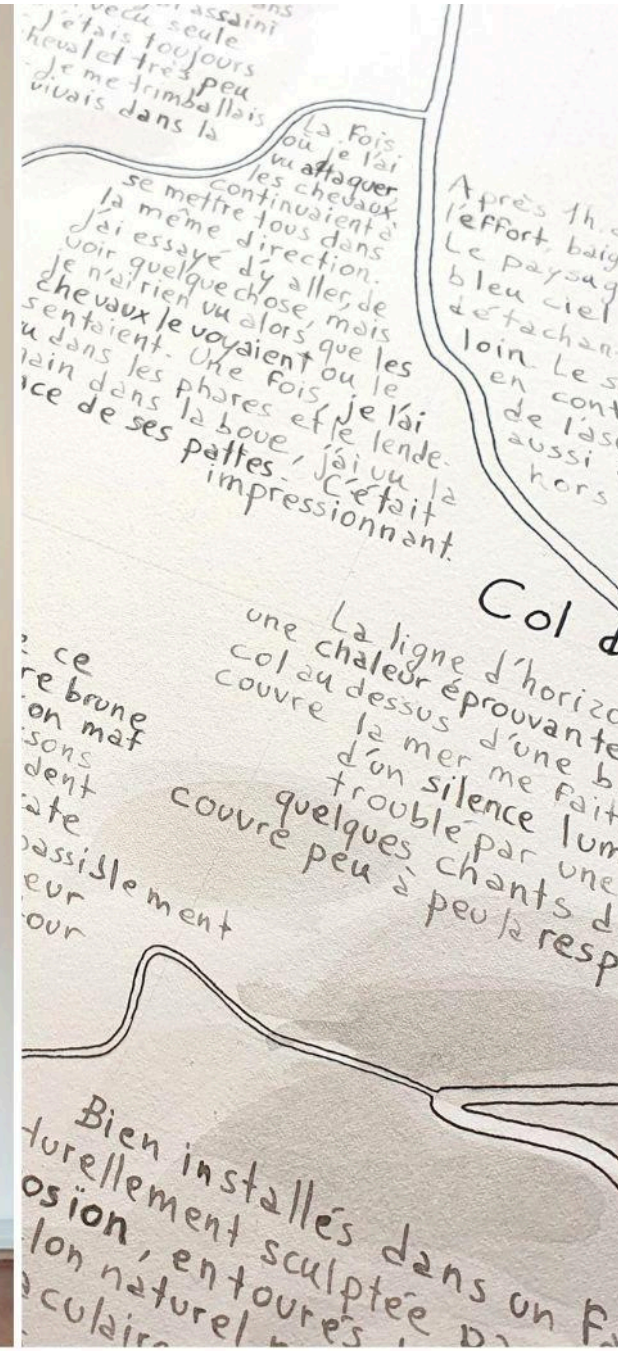 assaini
vécu seule
J'étais toujours
cheval et très peu
je me trimballais
vivais dans la
La Fois
où je l'ai
vu attaquer
les chevaux
continuaient à
se mettre tous dans
la même direction.
J'ai essayé d'y aller, de
voir quelque chose, mais
je n'ai rien vu alors que les
chevaux le voyaient ou le
sentaient. Une fois, je l'ai
u dans les phares et le lende-
main dans la boue, j'ai vu la
ace de ses pattes. C'était
impressionnant.
Après 1h.
l'effort, baig
Le paysag
bleu ciel
détachan
loin. Le s
en cont
de l'as
aussi
hors
Col d
La ligne d'horizo
une chaleur éprouvante
col au dessus d'une b
couvre la mer me fait
d'un silence lum
trouble par une
quelques chants d
couvre peu à peu la resp
ce
re brune
on mat
sons
dent
ate
passiblement
eur
our
Bien installés dans un fa
turellement sculptée pa
osion, entourés
lon naturel
aculaire